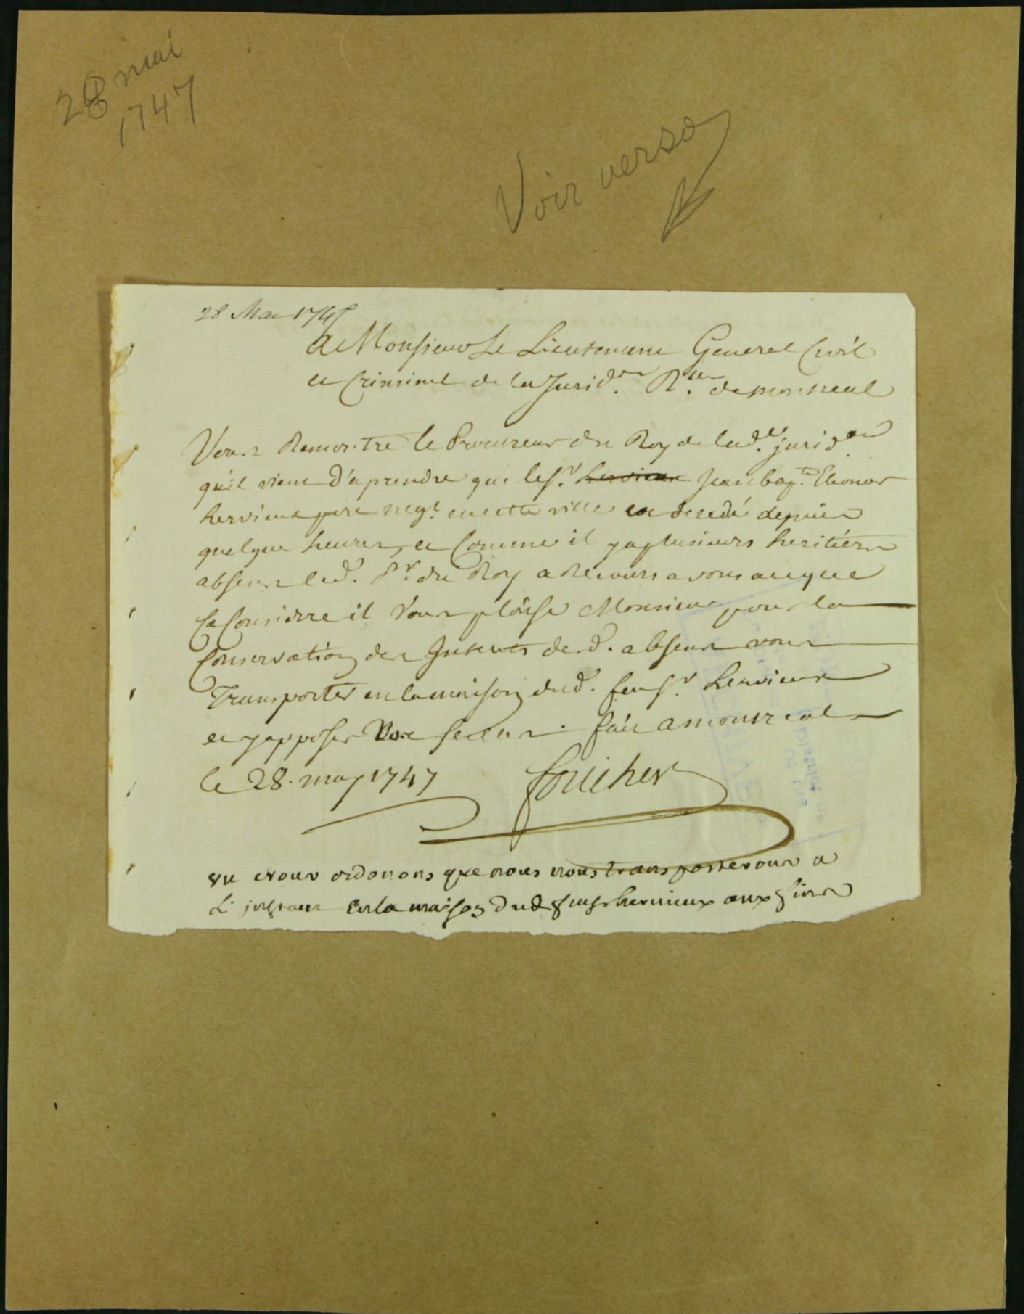 28 mai
1747
Voir verso
28 Mai 1747
A Monsieur Le Lieutenant General Civil
et Criminel de la Jurid.on R.lle de montreal
Vous Remontre le Procureur du Roy de lad.e jurid.on
qu'il vient d'aprendre que le s.r hervieux Jean bap.te Eleonor
hervieux pere neg.t en cette ville est decedé depuis
quelque heures, et Comme il y a plusieurs heritiers
absens led. P.r du Roy a Recours a vous a ce que
Ce Consideré il Vous plaise Monsieur pour la
Conservation des Interets desd. absens vous
Transporter en la maison dud. feu s.r hervieux
et y apposer Vos sceaux. fait a montreal
le 28. may 1747 foucher
vu nous ordonons que nous nous transporterons a
L'instant en la maison dud feu s.r hervieux aux fins